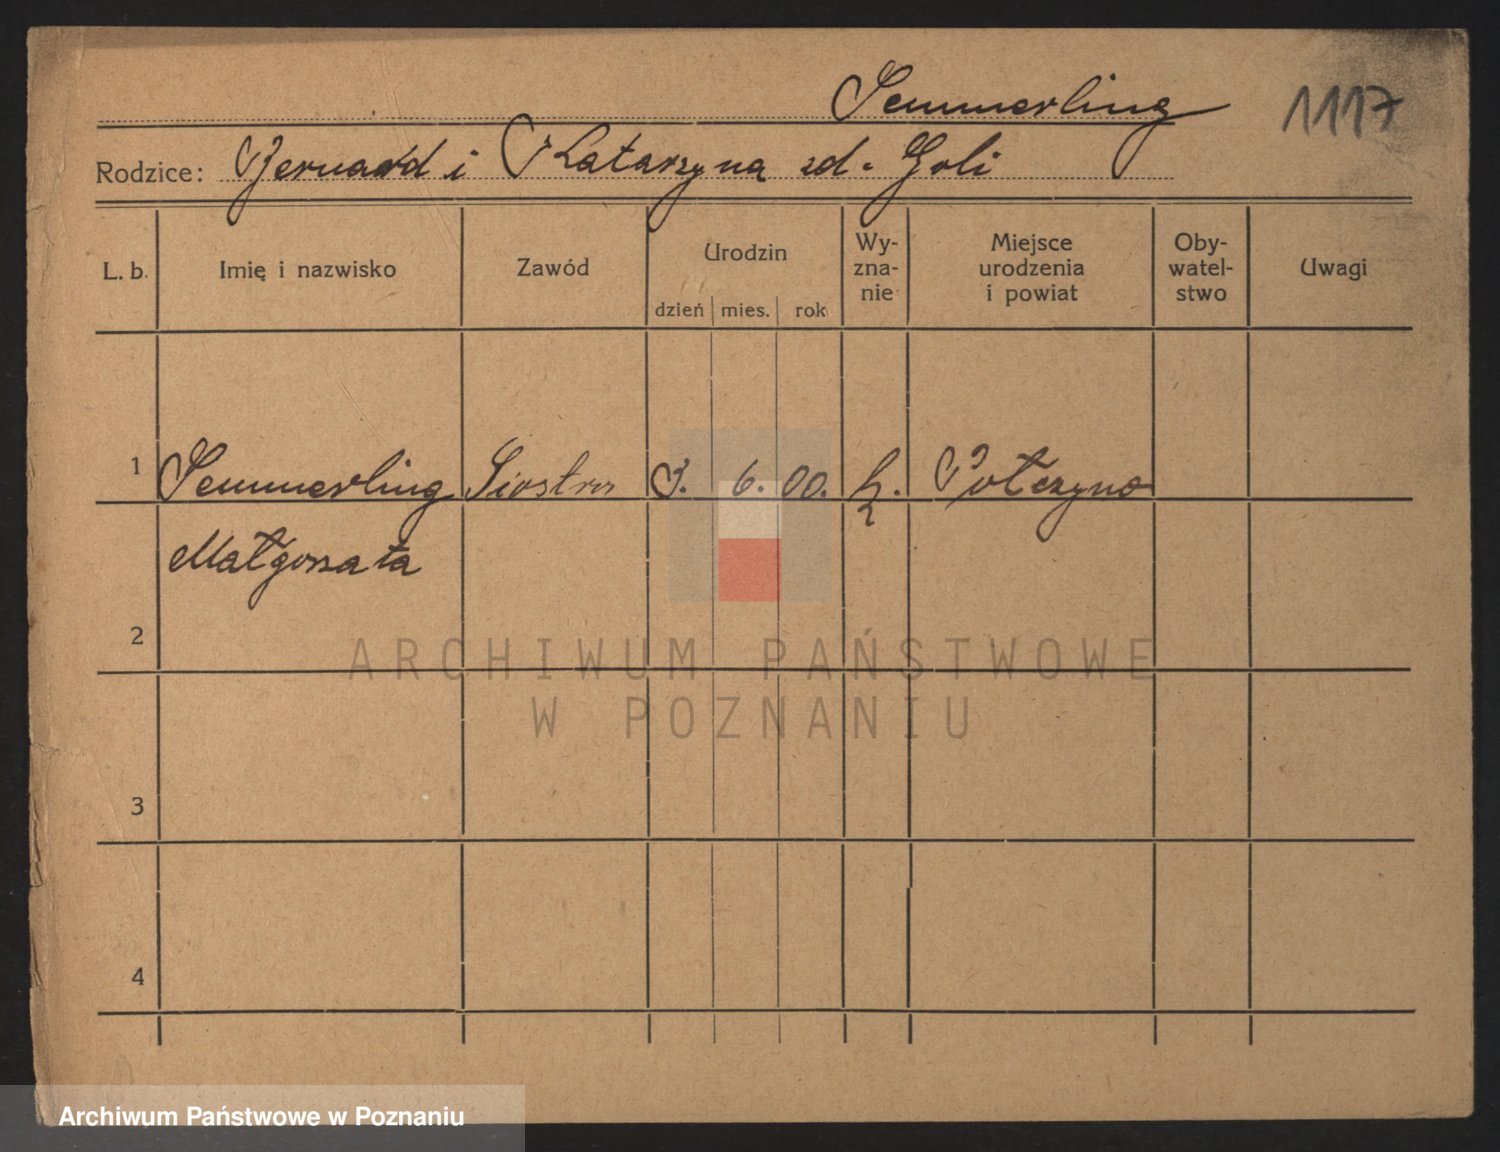 Semmerling 1117
Rodzice: Bernard i Katarzyna zd. Goli
L. b. Imię i nazwisko Zawód Urodzin dzień mies. rok Wy-zna-nie Miejsce urodzenia i powiat Oby-watel-stwo Uwagi
1 Semmerling Siostra 3. 6. 00. Połczyno
Małgorzata
2
ARCHIWUM PAŃSTWOWE
W POZNANIU
3
4
Archiwum Państwowe w Poznaniu